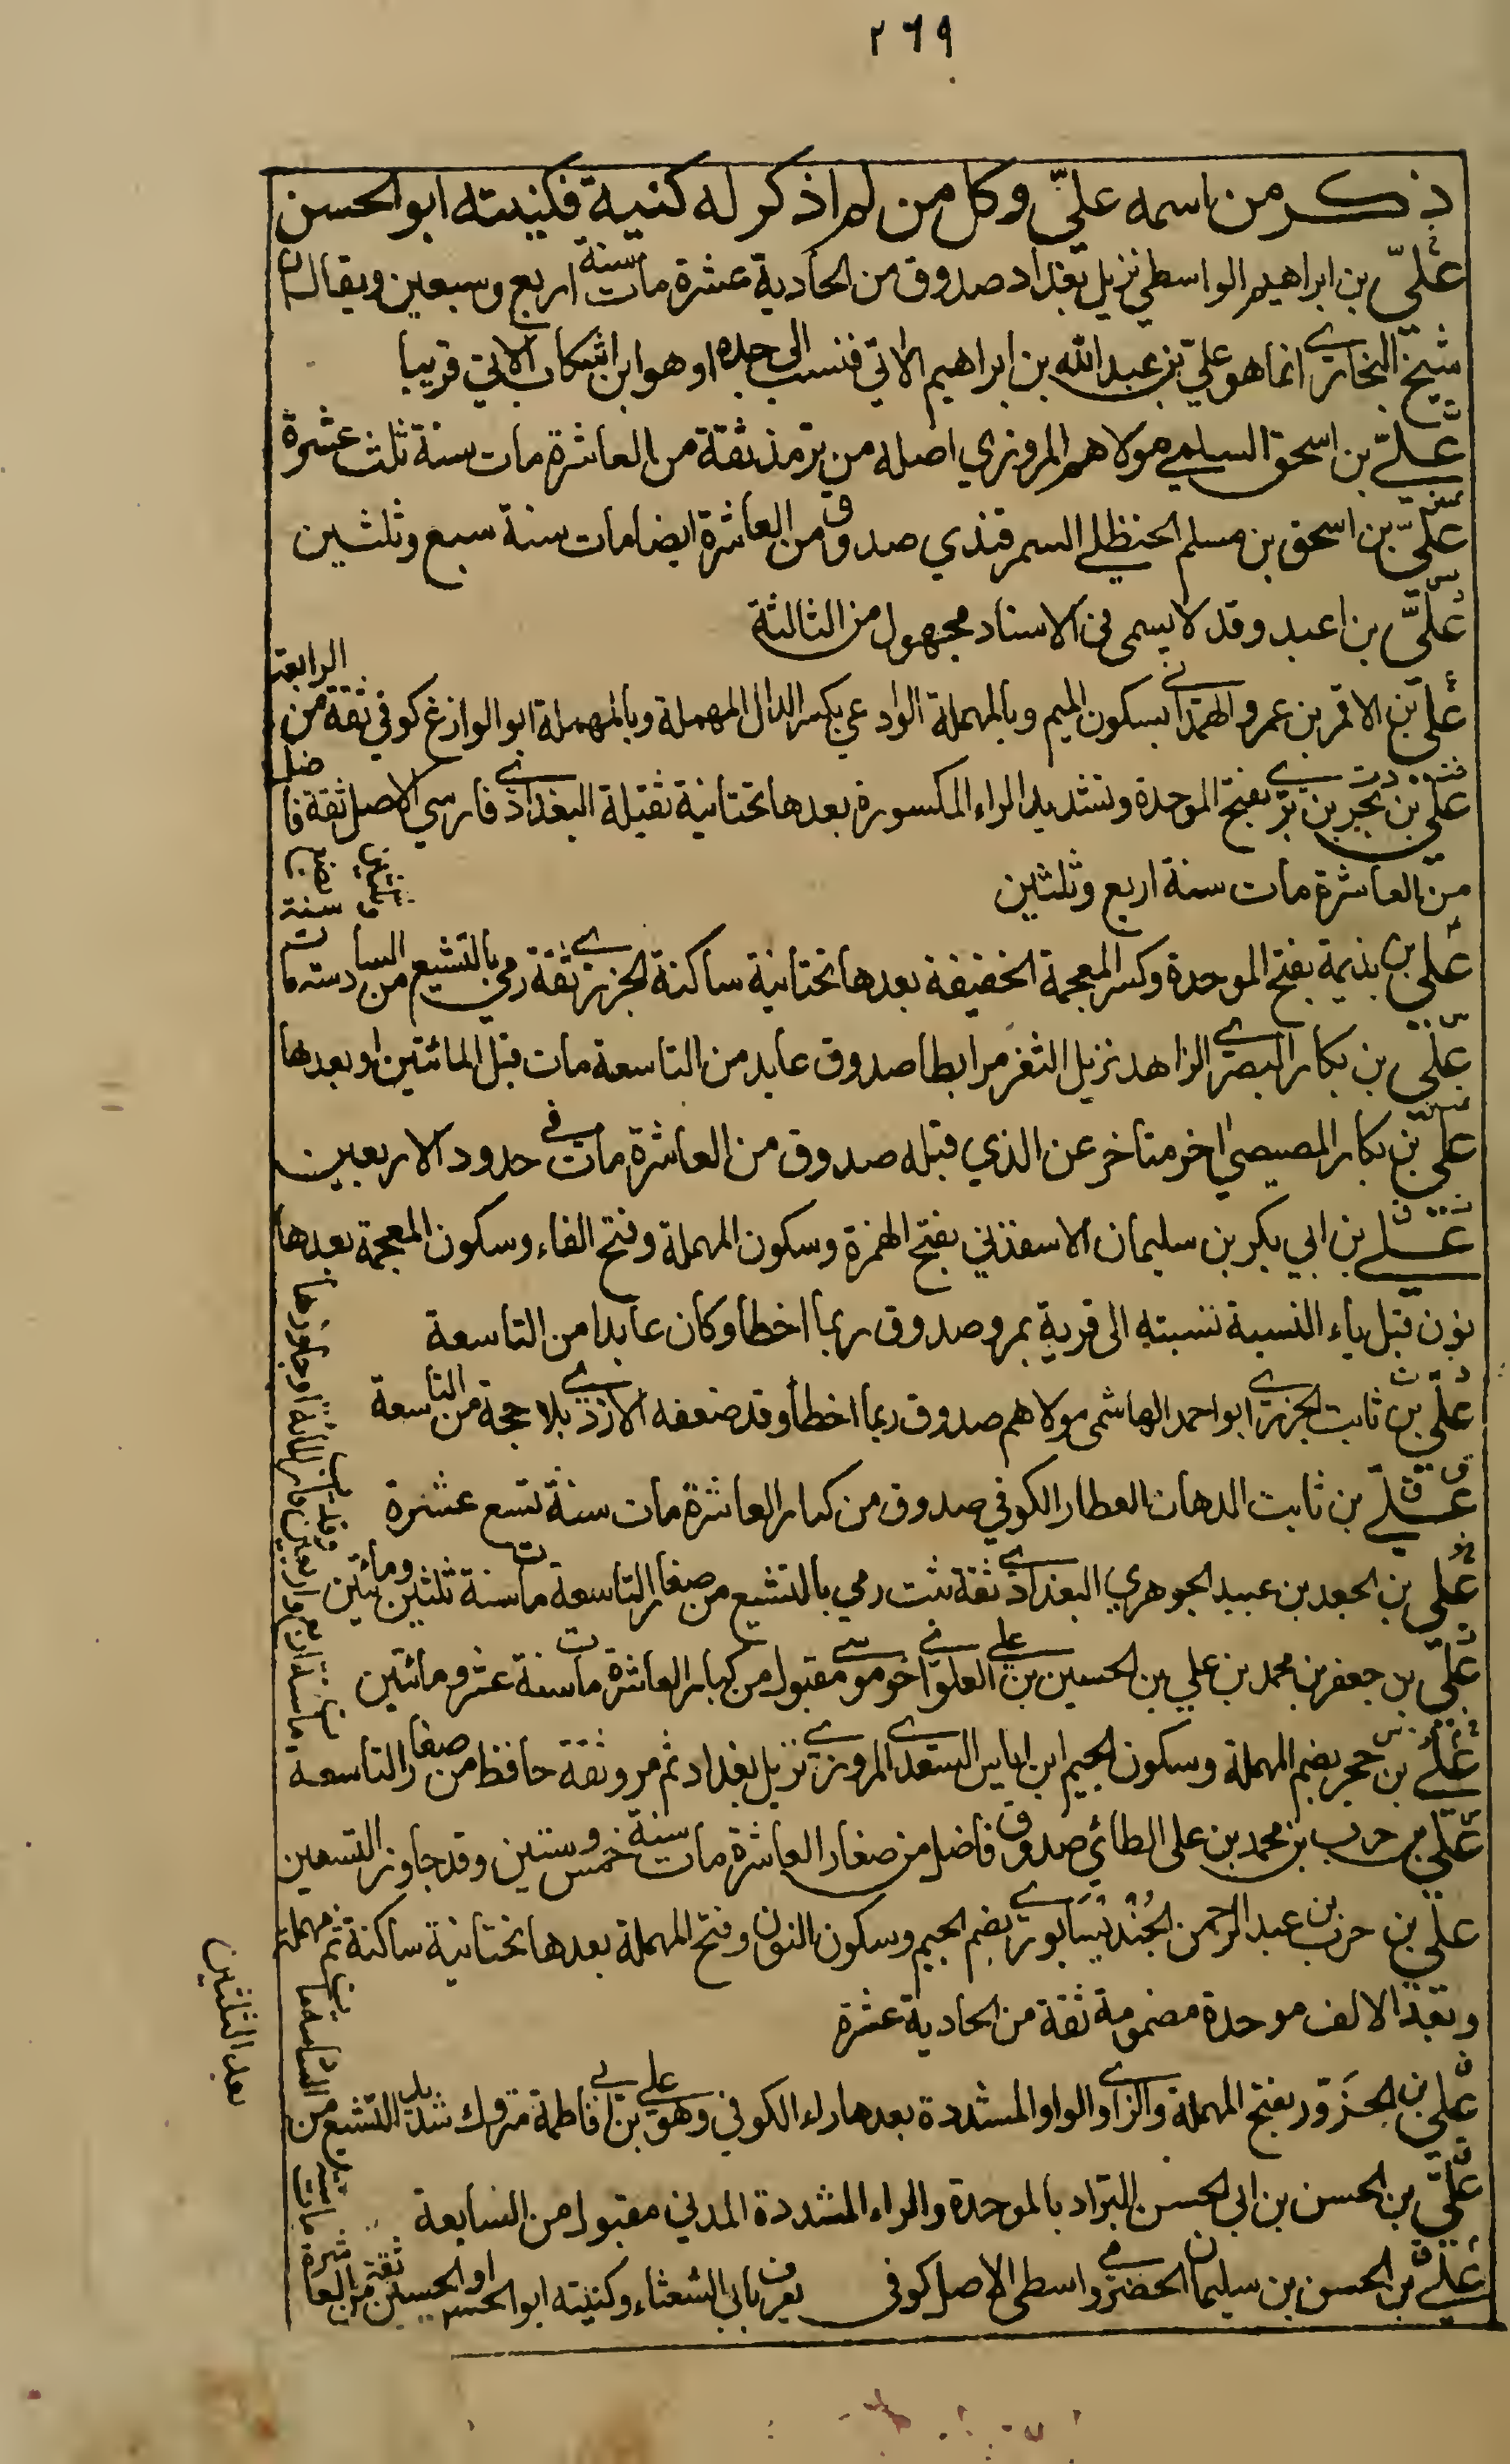 ٢٦٩
ذكر من اسمه عليّ وكل من لم اذكر له كنية فكنيته ابو الحسن
عليّ بن ابراهيم الواسطي نزيل بغداد صدوق من الحادية عشرة مات سنة اربع وسبعين ويقال ان
شيخ البخاري انما هو علي بن عبد الله بن ابراهيم الاتي فنسب الى جده او هو ابن اشكاب الاتي قريبا
عليّ بن اسحق السلمي مولاهم المروزي اصله من ترمذ ثقة من العاشرة مات سنة ثلث عشرة
عليّ بن اسحق بن مسلم الحنظلي السمرقندي صدوق من العاشرة ايضا مات سنة سبع وثلثين
عليّ بن اعبد وقد لا يسمى في الاسناد مجهول من الثالثة
علي بن الاقمر بن عمرو الهمداني بسكون الميم وبالمهملة الوادعي بكسر الدال المهملة وبالمهملة ابو الوازع كوفي ثقة من الرابعة
علي بن بحر بن بري بفتح الموحدة وتشديد الراء المكسورة بعدها تحتانية ثقيلة البغدادي فارسي الاصل ثقة فاضل
من العاشرة مات سنة اربع وثلثين
علي بن بذيمة بفتح الموحدة وكسر المعجمة الخفيفة بعدها تحتانية ساكنة الجزري ثقة رمي بالتشيع من السادسة مات
سنة بضع وثلثين
عليّ بن بكار البصري الزاهد نزيل الثغر مرابطا صدوق عابد من التاسعة مات قبل المائتين او بعدها
عليّ بن بكار المصيصي اخر متاخر عن الذي قبله صدوق من العاشرة مات في حدود الاربعين
علي بن ابي بكر بن سليمان الاسفذني بفتح الهمزة وسكون المهملة وفتح الفاء وسكون المعجمة بعدها
نون قبل ياء النسبة نسبته الى قرية بمرو صدوق ربما اخطأ وكان عابدا من التاسعة
عليّ بن ثابت الجزري ابو احمد الهاشمي مولاهم صدوق ربما اخطأ وقد ضعفه الازدي بلا حجة من التاسعة
عليّ بن ثابت الدهان العطار الكوفي صدوق من كبار العاشرة مات سنة تسع عشرة
علي بن الجعد بن عبيد الجوهري البغدادي ثقة ثبت رمي بالتشيع من صغار التاسعة مات سنة ثلثين ومائتين
عليّ بن جعفر بن محمد بن علي بن الحسين بن علي العلوي اخو موسى مقبول من كبار العاشرة مات سنة عشر ومائتين
علي بن حجر بضم المهملة وسكون الجيم ابن اياس السعدي المروزي نزيل بغداد ثم مرو ثقة حافظ من صغار التاسعة
مات سنة اربع واربعين وقد قارب المائة او جاوزها
عليّ بن حرب بن محمد بن علي الطائي صدوق فاضل من صغار العاشرة مات سنة خمس وستين وقد جاوز التسعين
علي بن حرب بن عبد الرحمن الجنديسابوري بضم الجيم وسكون النون وفتح المهملة بعدها تحتانية ساكنة ثم مهملة
وبعد الالف موحدة مضمومة ثقة من الحادية عشرة
علي بن الحزور بفتح المهملة والزاي والواو المشددة بعدها راء الكوفي وهو علي بن ابي فاطمة متروك شديد التشيع من
السادسة مات
بعد الثلثين
عليّ بن الحسن بن ابي الحسن البراد بالموحدة والراء المشددة المدني مقبول من السابعة
علي بن الحسن بن سليمان الحضرمي واسطي الاصل كوفي يعرف بابي الشعثاء وكنيته ابو الحسن او الحسين ثقة من العاشرة
مات